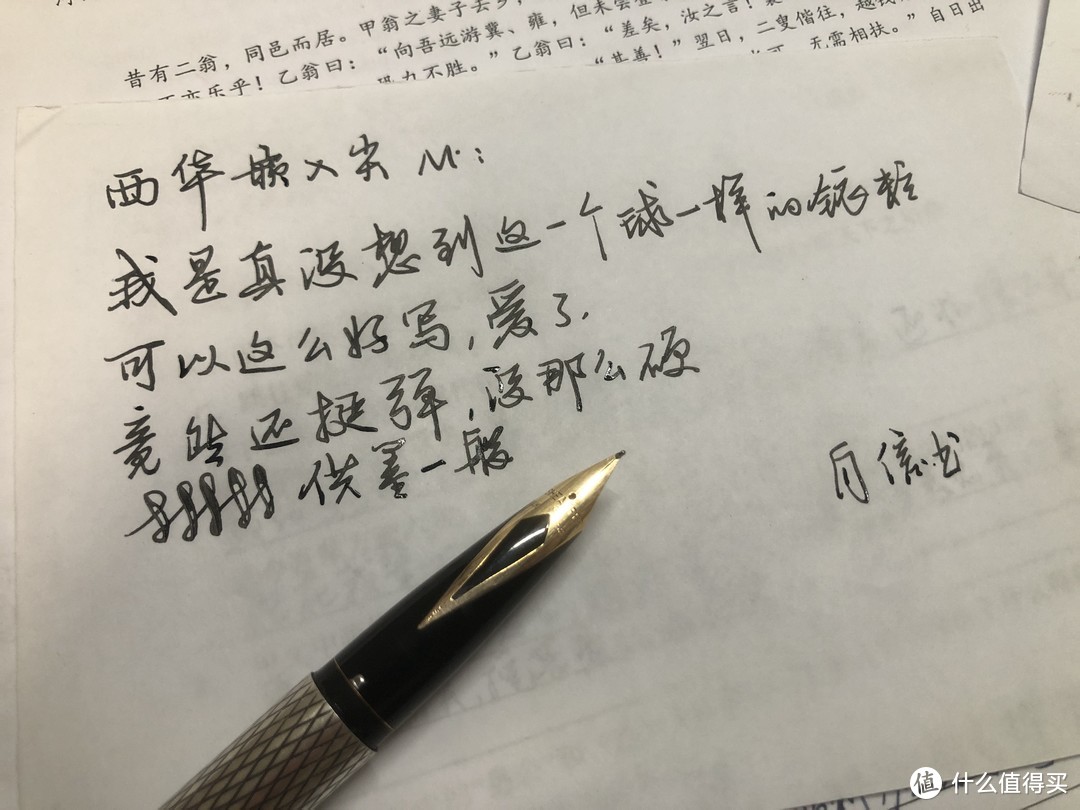 昔有二翁，同邑而居。甲翁之妻子去乡，
"向吾远游冀、雍，但未尝登
"差矣，汝之言！
不亦乐乎！乙翁曰：
恐力不胜。"乙翁曰：
"甚善！"翌日，二叟偕往，越
无需相扶。"自日出
西华嵌入尖 M：
我是真没想到这一个球一样的铱粒
可以这么好写，爱了.
竟然还挺弹，没那么硬
供墨一般
月信书
值 什么值得买